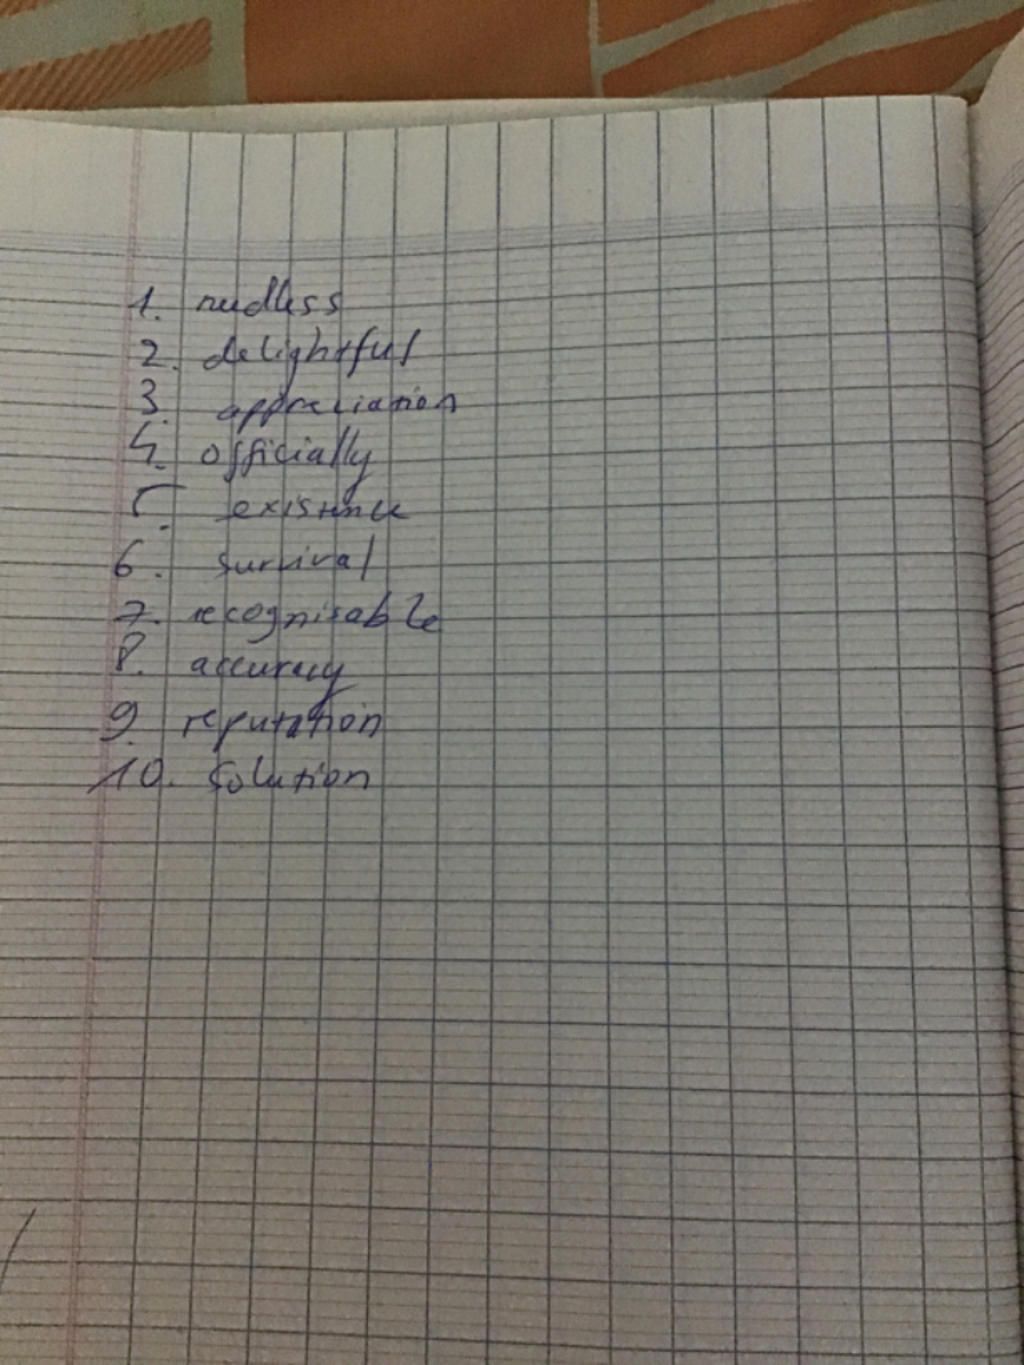 1. needless
2. delightful
3. appreciation
4. officially
5. existence
6. survival
7. recognisable
8. accuracy
9. reputation
10. solution